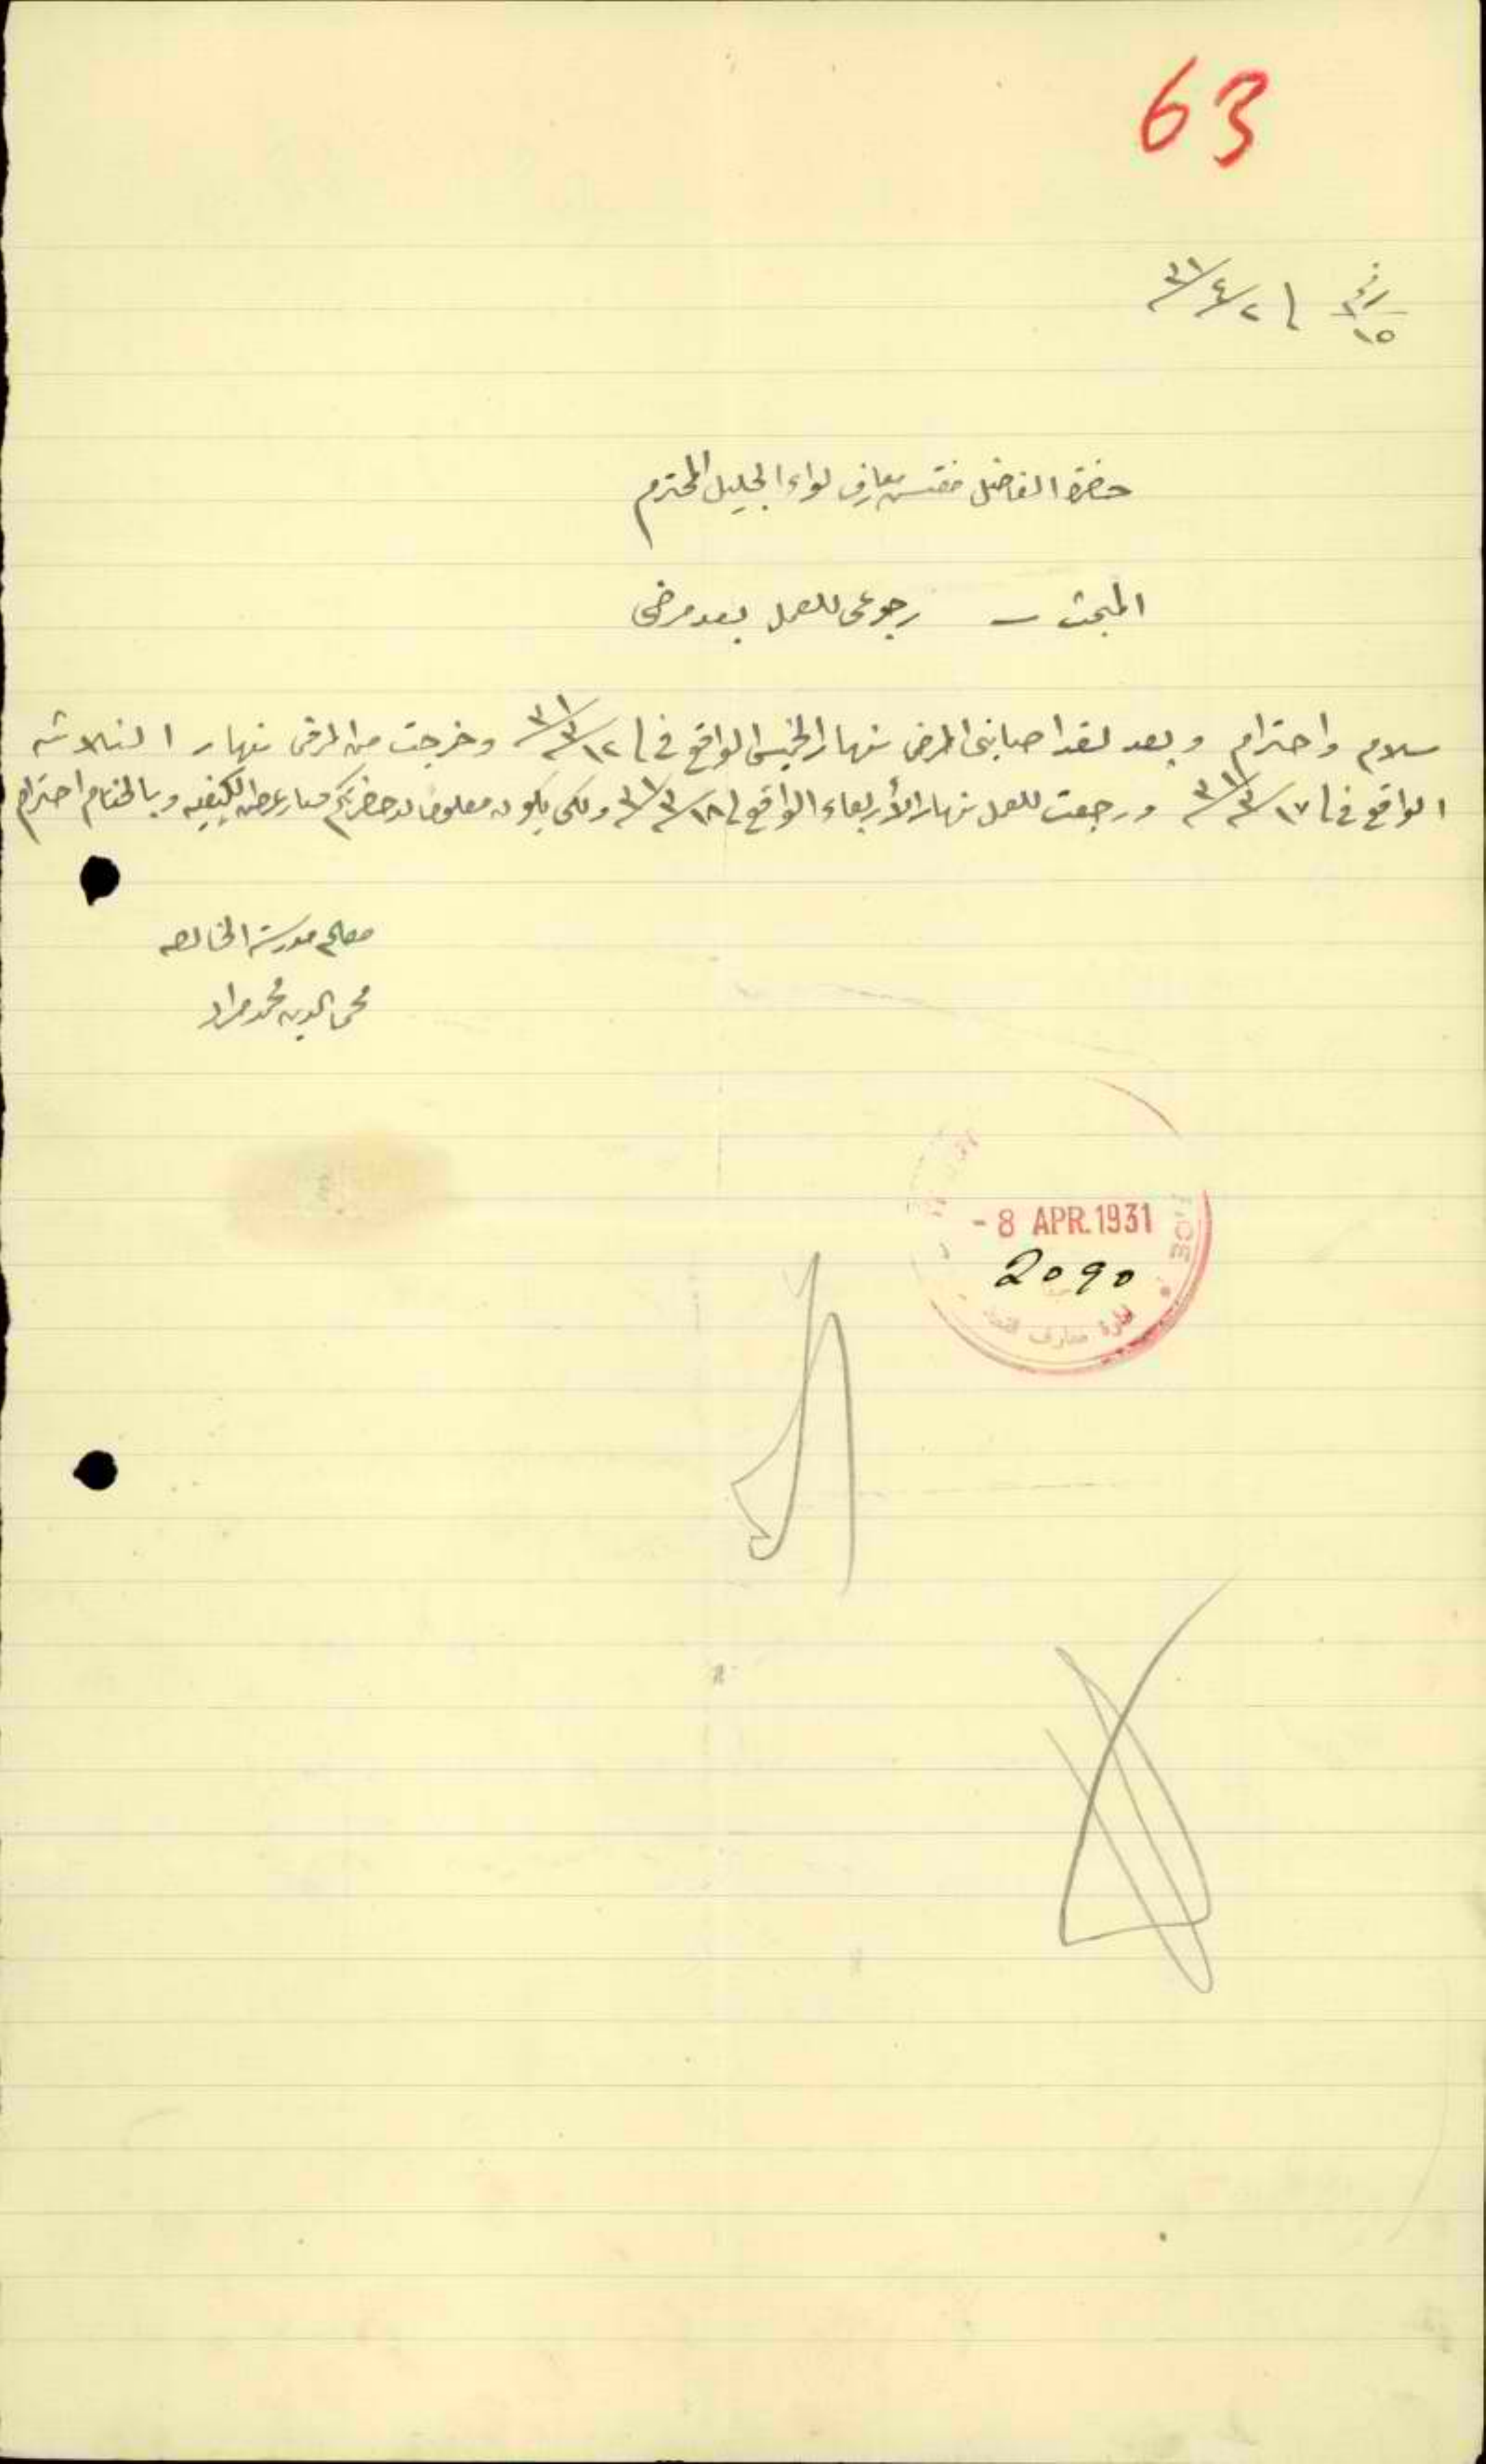 63
رقم ١٥ في ٢/٤/٣١
حضرة الفاضل مفتش معارف لواء الجليل المحترم
المبحث – رجوعي للعمل بعد مرضي
سلام واحترام وبعد لقد اصابني المرض نهار الخميس الواقع في ١٢/٣/٣١ وخرجت من المرض نهار الثلاثه
الواقع في ١٧/٣/٣١ ورجعت للعمل نهار الأربعاء الواقع في ١٨/٣/٣١ ولكي يكون معلوما لدى حضرتكم صار عرض الكيفيه وبالختام احترام
معلم مدرسة الخالصه
محي الدين محمد مراد
- 8 APR. 1931
2090
ادارة معارف